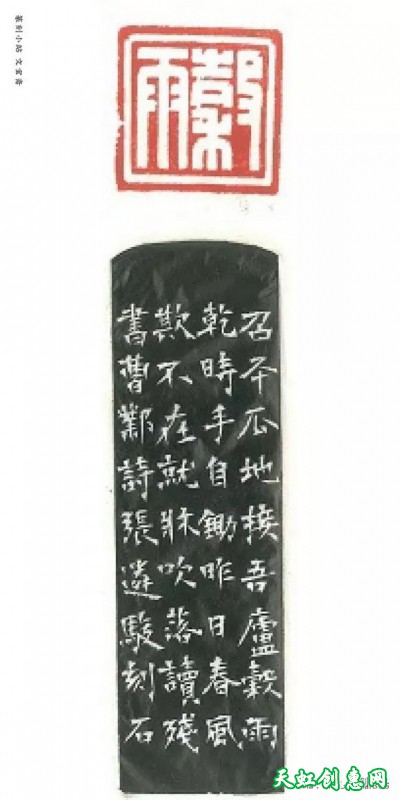 穀雨
召平瓜地接吾廬穀雨
乾時手自鋤昨日春風
欺不在就牀吹落讀殘
書曹鄴詩張遴駿刻石
篆刻小站
天虹创惠网